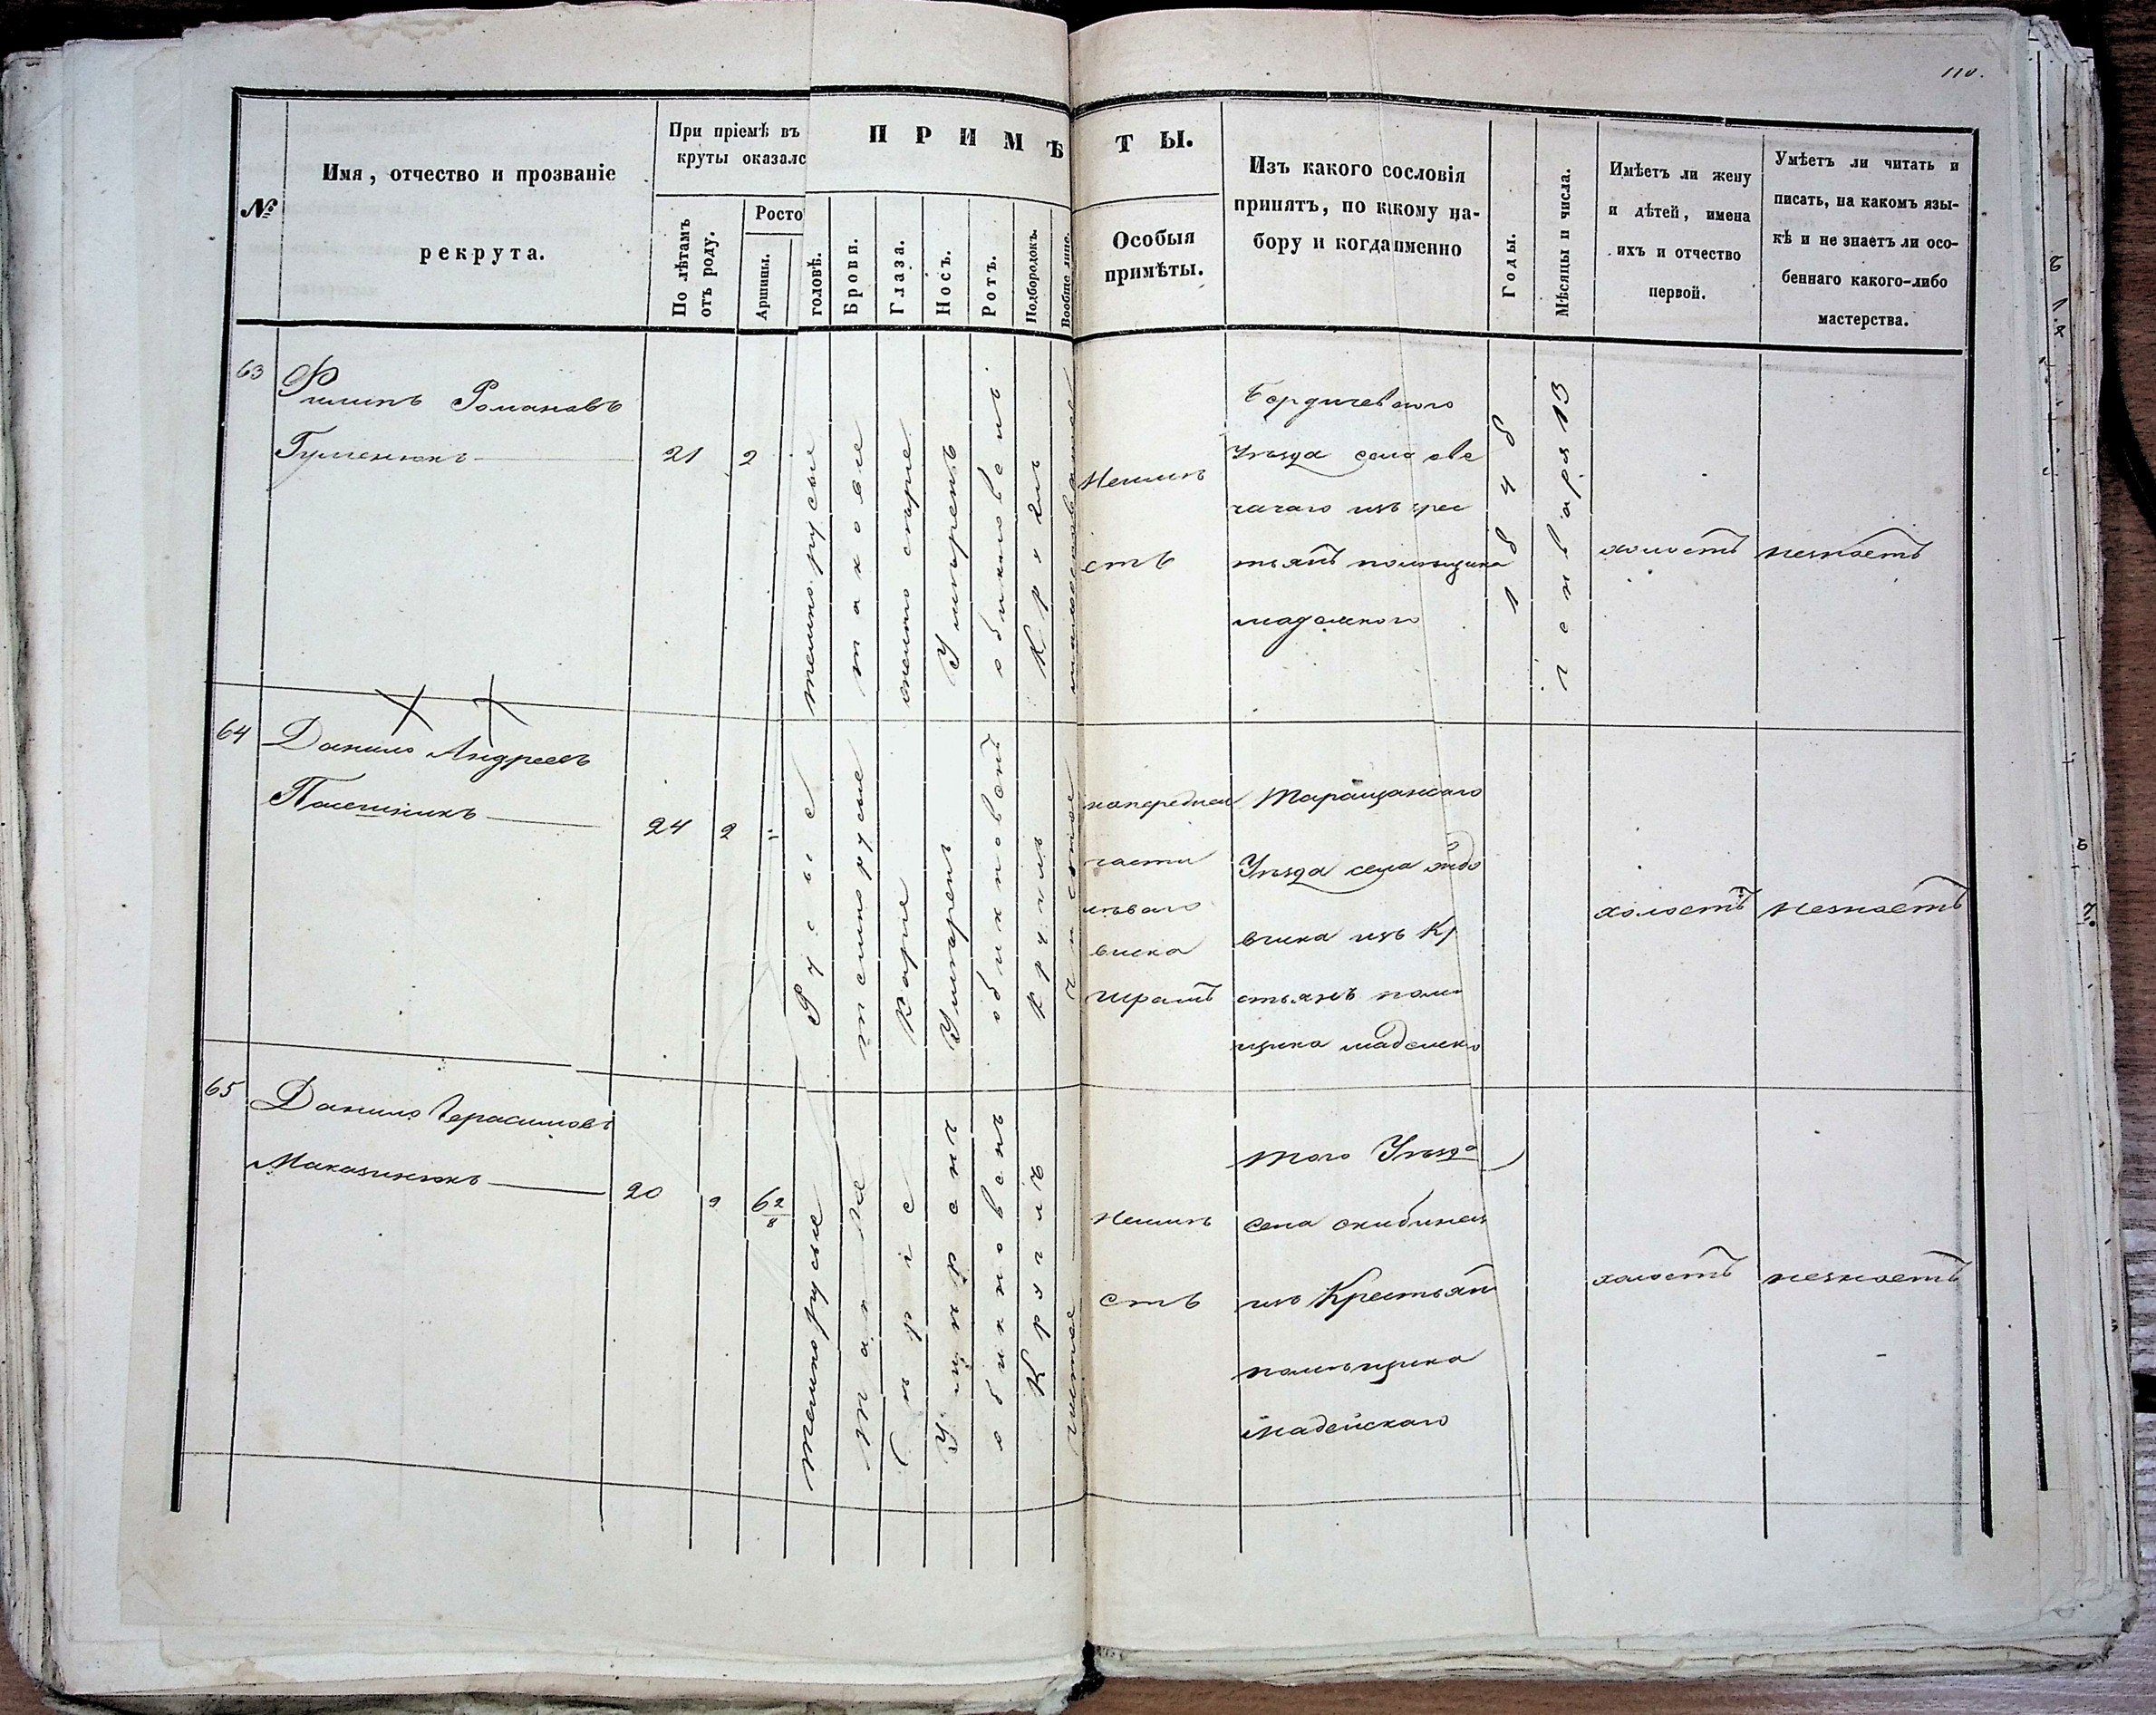 110.
№
Имя, отчество и прозваніе
рекрута.
При пріемѣ въ
круты оказалс
По лѣтамъ
отъ роду.
Росто
Аршины.
ПРИМѢ
ТЫ.
головѣ.
Брови.
Глаза.
Носъ.
Ротъ.
Подбородокъ.
Вообще лице.
Особыя
примѣты.
Изъ какого сословія
принятъ, по какому на-
бору и когда именно
Годы.
Мѣсяцы и числа.
Имѣетъ ли жену
и дѣтей, имена
ихъ и отчество
первой.
Умѣетъ ли читать и
писать, на какомъ язы-
кѣ и не знаетъ ли осо-
беннаго какого-либо
мастерства.
63
Филипъ Романовъ
Гуменюкъ
21
2
темнорусые
таковые
Умѣренъ
обикновенъ
Круглъ
Неимѣ
етъ
Бердичевскаго
Уѣзда села
изъ крес
тьянъ помѣщика
1848
генваря 13
холостъ
незнаетъ
64
Данило Андреевъ
Пасешникъ
24
2
Русые
темнорусые
Каріе
Умѣренъ
обикновенъ
Круглъ
Чистое
напередней
части
лѣваго
виска
шрамъ
Таращанскаго
Уѣзда села
изъ Кр
стьянъ помѣ
щика
холостъ
незнаетъ
65
Данило Герасимовъ
20
2
6 2/8
темнорусые
обикновенъ
Круглъ
чистое
Неимѣ
етъ
того Уѣзда
села
изъ Крестьянъ
помѣщика
холостъ
незнаетъ